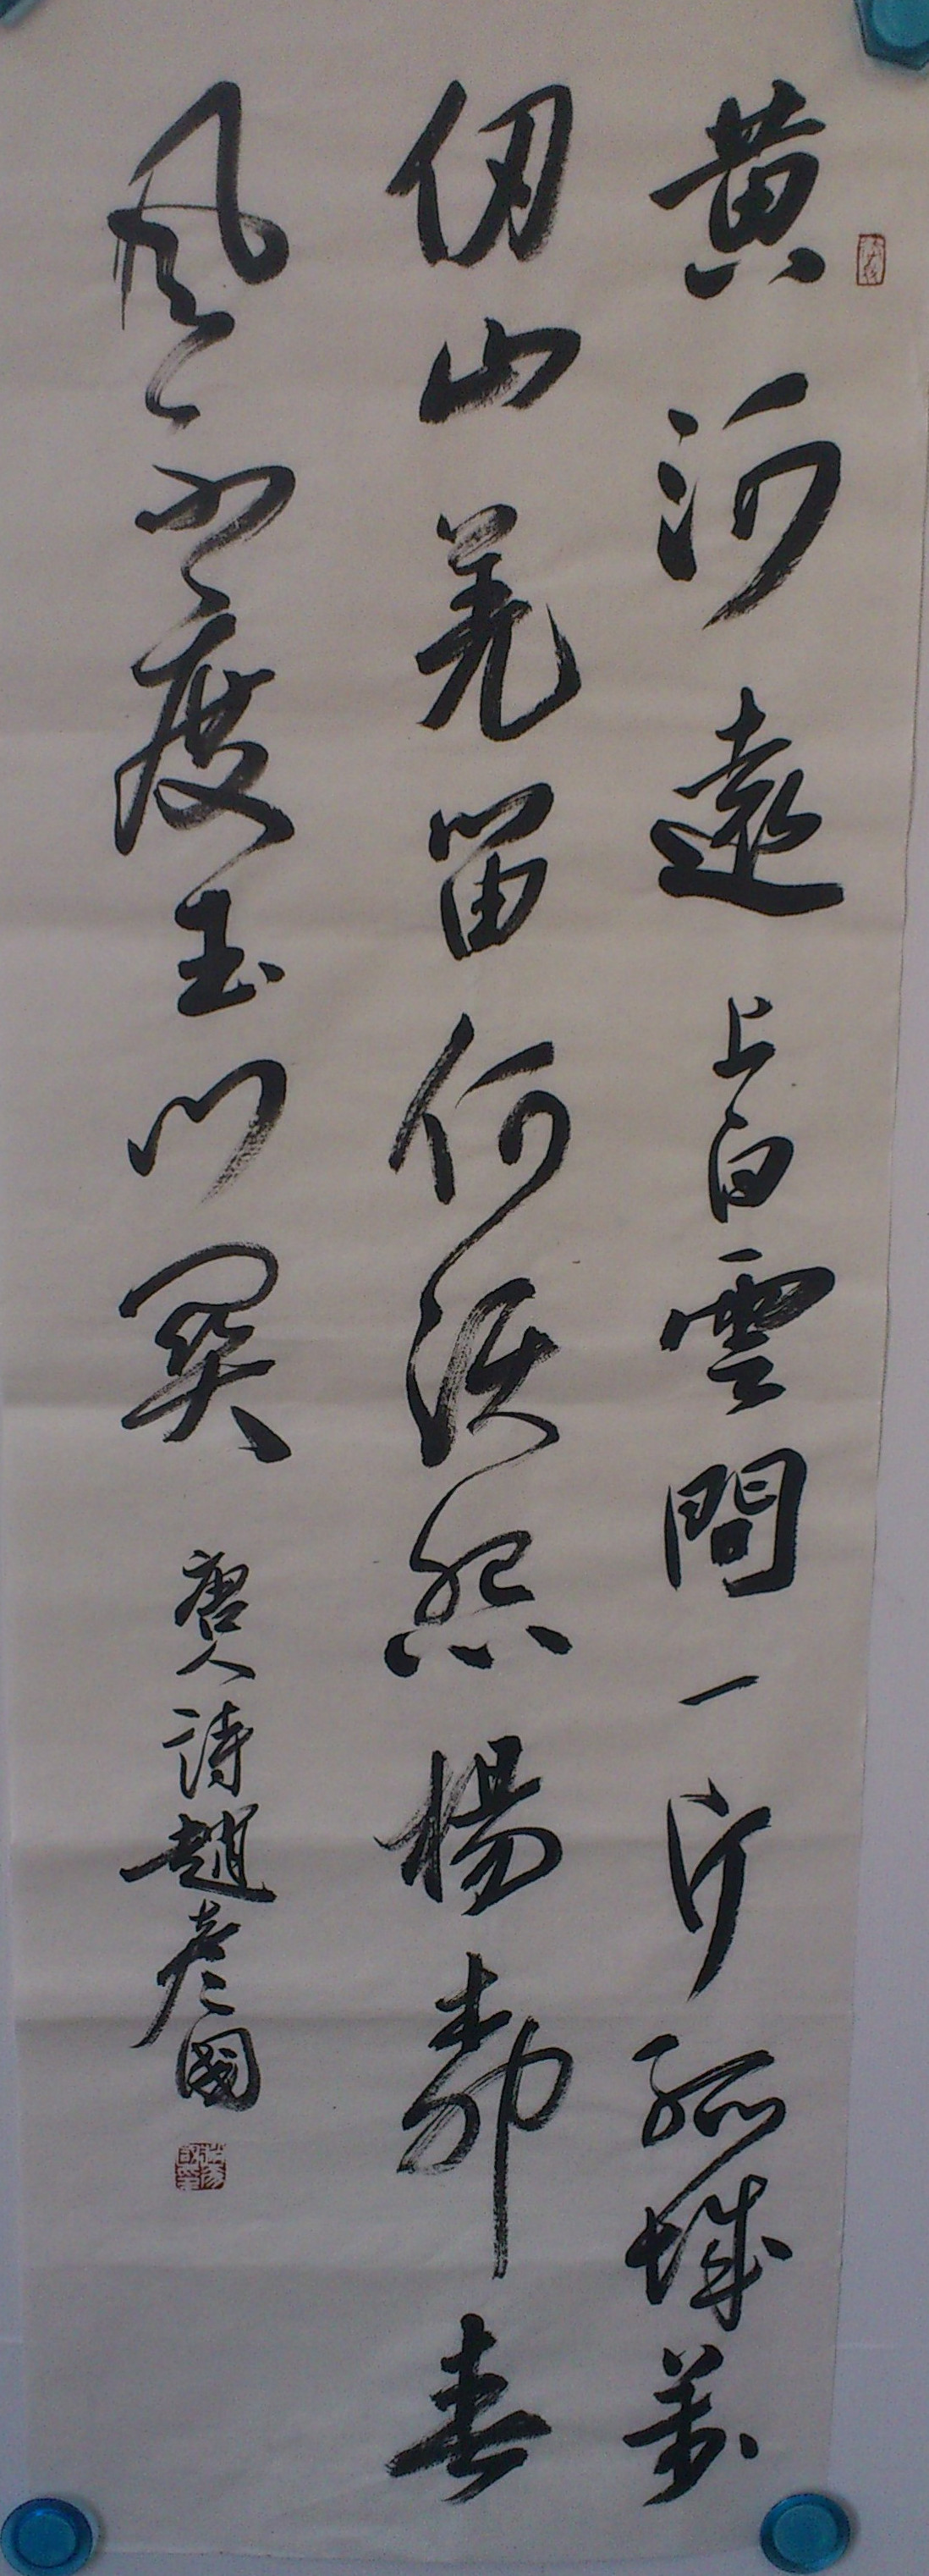 黄河遠上白雲間一片孤城萬
仞山羌笛何須怨楊柳春
風不度玉門關 唐人詩趙彦國